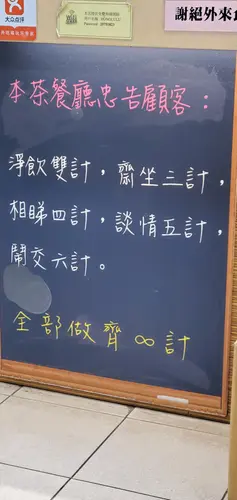 大众点评
謝絕外來
本茶餐廳忠告顧客：
淨飲雙計，齋坐三計，
相睇四計，談情五計，
鬧交六計。
全部做齊∞計